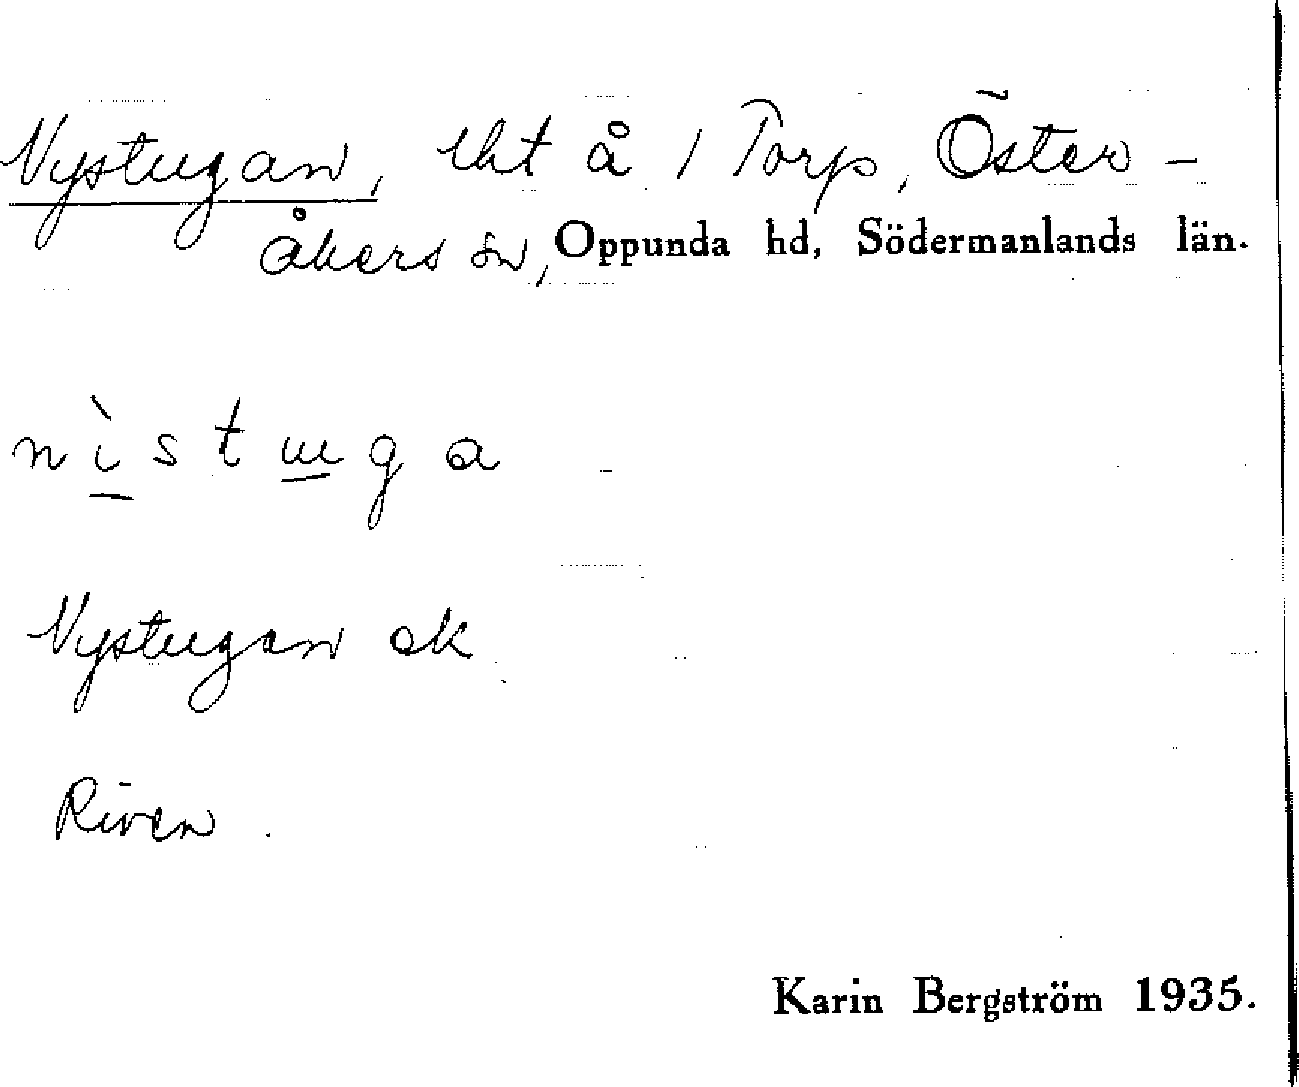 Nystugan, lht å 1 Torp, Öster-
åkers sn, Oppunda hd, Södermanlands län.
nìstuga
Nystugan ek
Riven.
Karin Bergström 1935.